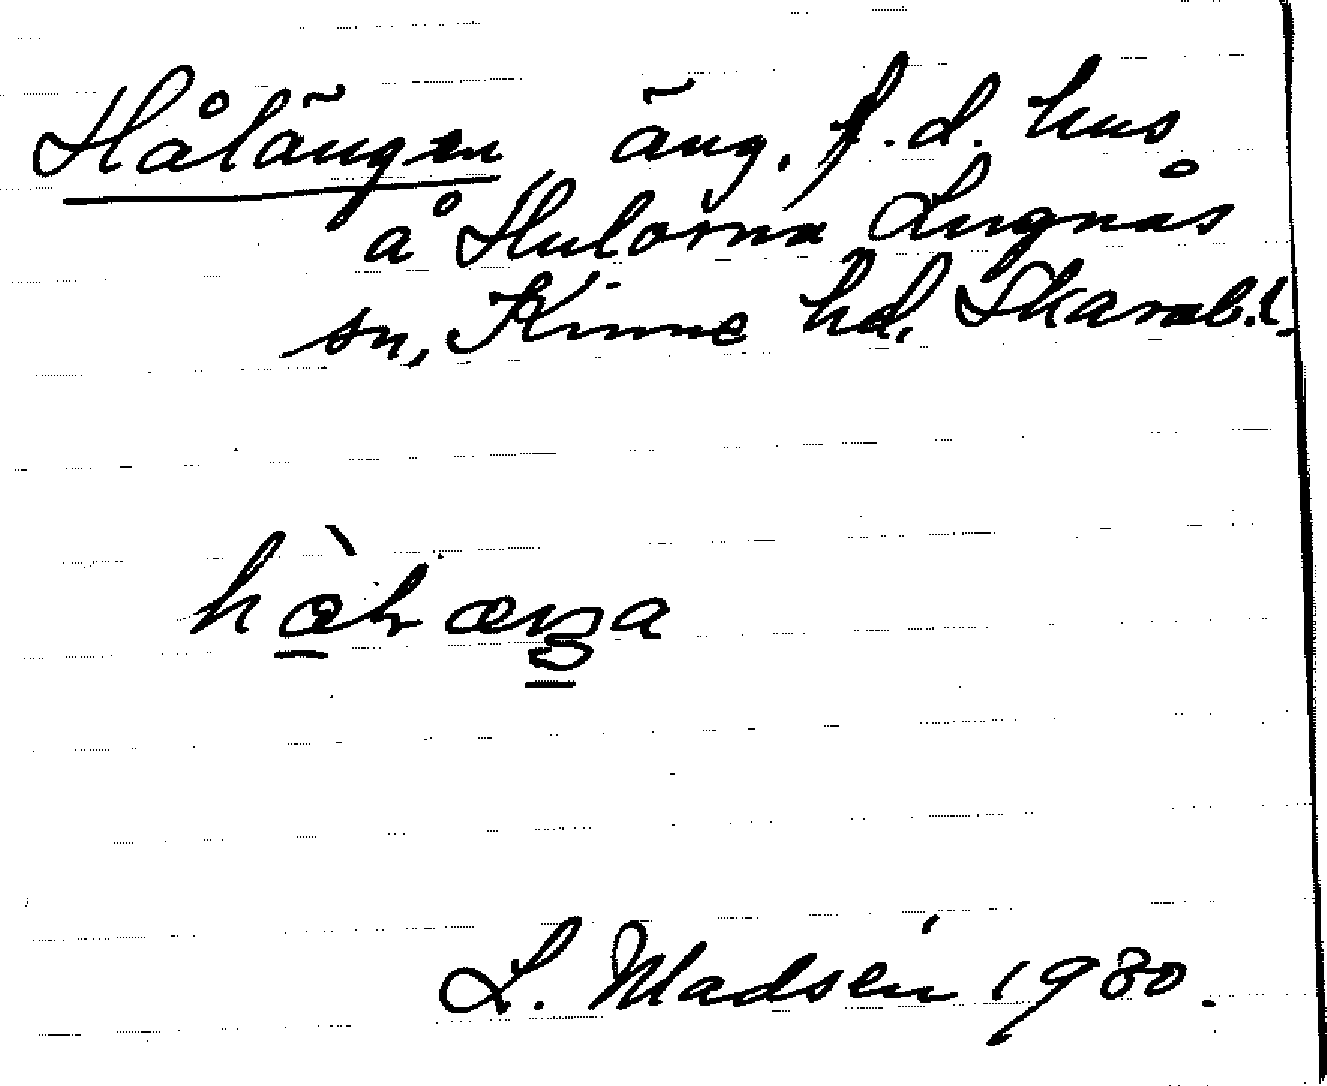 Hålängen äng, f.d. hus
å Hulorna Lugnås
sn, Kinne hd, Skarab.l.
L. Madsén 1930.